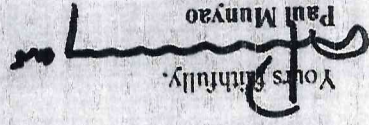 Yours faithfully.
Paul Munyao